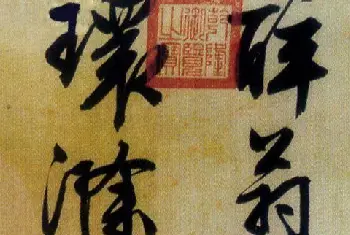 醉翁
乾隆
御覽
之寶
環滁